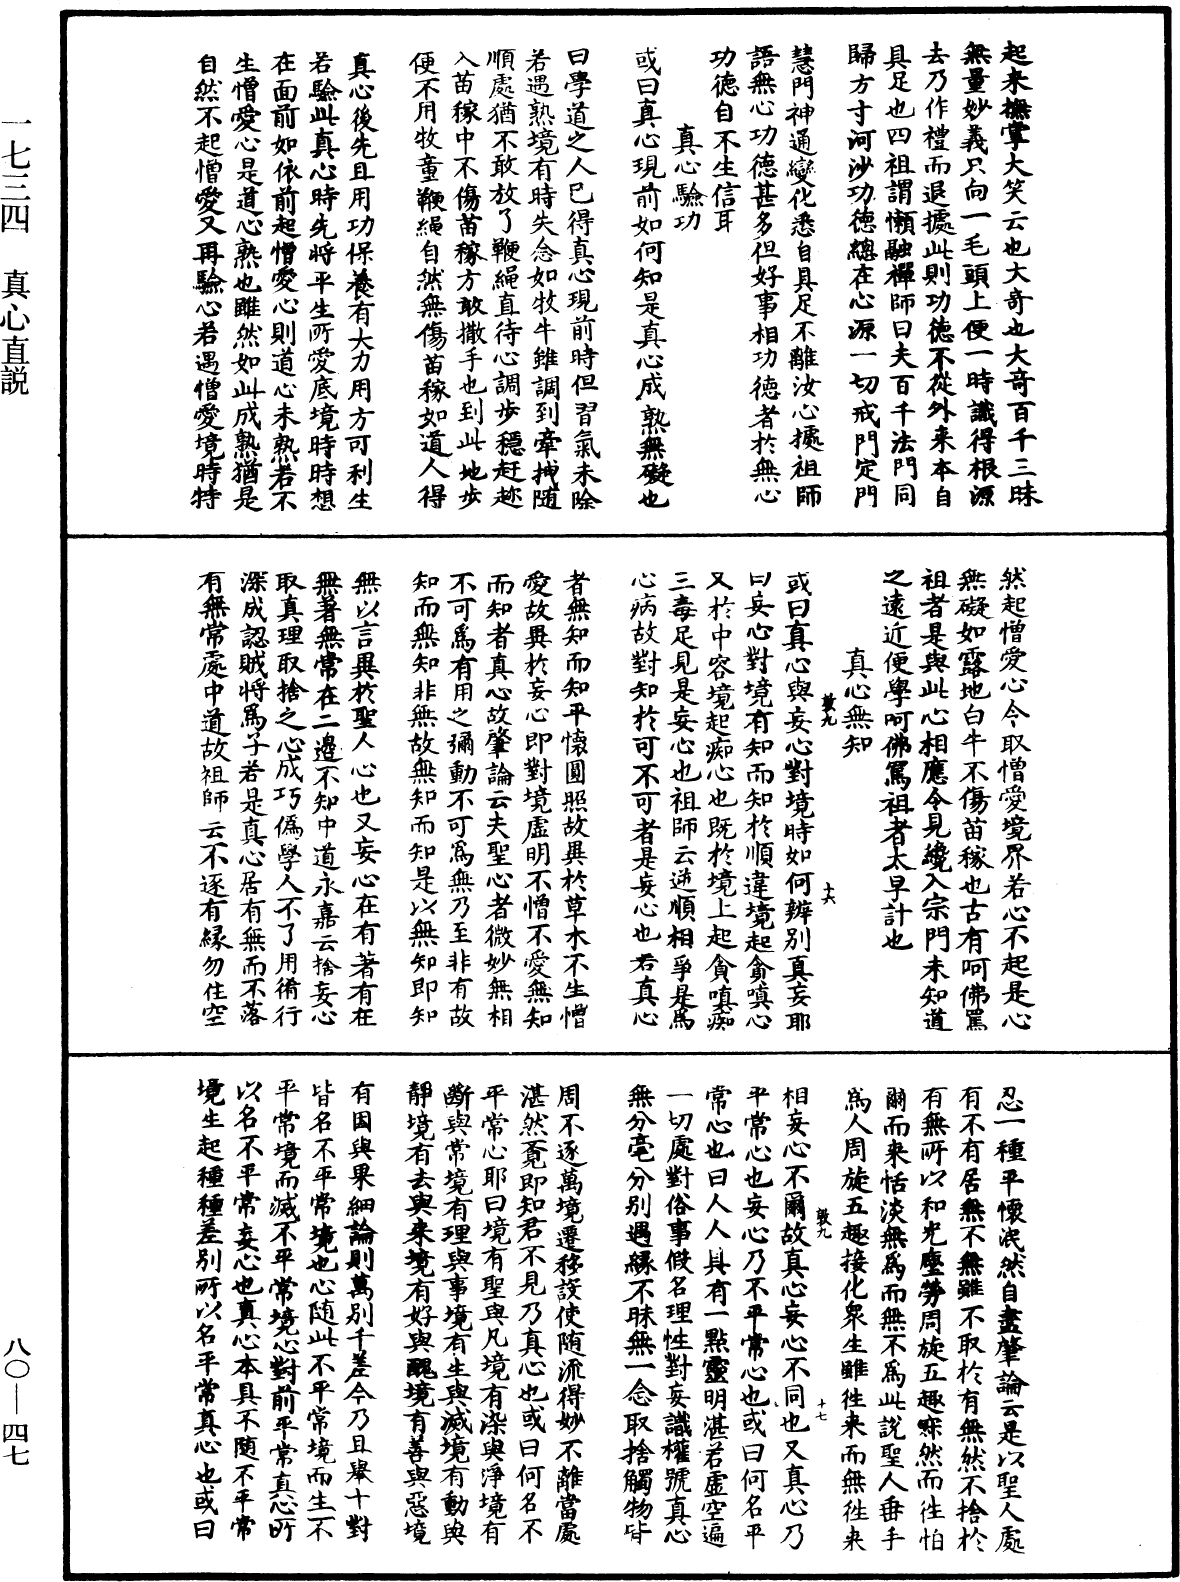 一七三四　真心直説
起来撫掌大笑云也大奇也大奇百千三昧
無量妙義只向一毛頭上便一時識得根源
去乃作禮而退據此則功徳不從外来本自
具足也四祖謂懶融禪師曰夫百千法門同
歸方寸河沙功徳總在心源一切戒門定門
慧門神通變化悉自具足不離汝心據祖師
語無心功徳甚多但好事相功徳者於無心
功徳自不生信耳
真心驗功
或曰真心現前如何知是真心成熟無礙也
曰學道之人已得真心現前時但習氣未除
若遇熟境有時失念如牧牛雖調到牽拽随
順處猶不敢放了鞭繩直待心調歩穩赶趂
入苗稼中不傷苗稼方敢撒手也到此地歩
便不用牧童鞭繩自然無傷苗稼如道人得
真心後先且用功保養有大力用方可利生
若驗此真心時先將平生所愛底境時時想
在面前如依前起憎愛心則道心未熟若不
生憎愛心是道心熟也雖然如此成熟猶是
自然不起憎愛又再驗心若遇憎愛境時特
然起憎愛心令取憎愛境界若心不起是心
無礙如露地白牛不傷苗稼也古有呵佛罵
祖者是與此心相應今見纔入宗門未知道
之遠近便學呵佛罵祖者太早計也
真心無知
或曰真心與妄心對境時如何辨别真妄耶
曰妄心對境有知而知於順違境起貪嗔心
又於中容境起痴心也既於境上起貪嗔痴
三毒足見是妄心也祖師云逆順相爭是爲
心病故對知於可不可者是妄心也若真心
者無知而知平懷圓照故異於草木不生憎
愛故異於妄心即對境虚明不憎不愛無知
而知者真心故肇論云夫聖心者微妙無相
不可爲有用之彌勤不可爲無乃至非有故
知而無知非無故無知而知是以無知即知
無以言異於聖人心也又妄心在有著有在
無著無常在二邉不知中道永嘉云捨妄心
取真理取捨之心成巧僞學人不了用脩行
深成認賊將爲子若是真心居有無而不落
有無常處中道故祖師云不逐有縁勿住空
忍一種平懷泯然自盡肇論云是以聖人處
有不有居無不無雖不取於有無然不捨於
有無所以和光塵勞周旋五趣寂然而往怕
爾而来恬淡無爲而無不爲此說聖人垂手
爲人周旋五趣接化衆生雖往来而無往来
相妄心不爾故真心妄心不同也又真心乃
平常心也妄心乃不平常心也或曰何名平
常心也曰人人具有一點靈明湛若虚空遍
一切處對俗事假名理性對妄識權號真心
無分毫分别遇縁不昧無一念取捨觸物皆
周不逐萬境遷移設使随流得妙不離當處
湛然覔即知君不見乃真心也或曰何名不
平常心耶曰境有聖與凡境有染與淨境有
斷與常境有理與事境有生與滅境有動與
靜境有去與来境有好與醜境有善與惡境
有因與果細論則萬别千差今乃且舉十對
皆名不平常境也心随此不平常境而生不
平常境而滅不平常境心對前平常真心所
以名不平常妄心也真心本具不随不平常
境生起種種差别所以名平常真心也或曰
敦九
十六
敦九
十七
八〇—四七